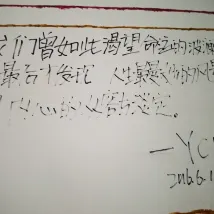 我们曾如此渴望命运的波澜
最后才发现 人生最曼妙的风景
内心的淡定与从容。
—YC
2016.6.1